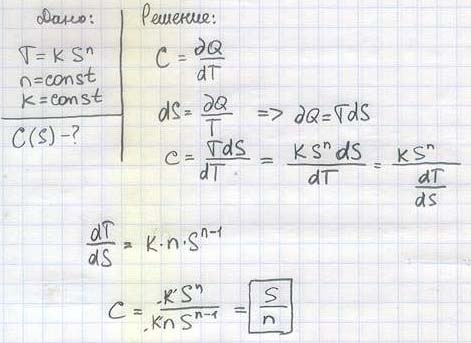 Дано:
T = k Sⁿ
n = const
k = const
C(S) - ?
Решение:
C = ∂Q/dT
dS = ∂Q/T => ∂Q = TdS
C = TdS/dT = kSⁿdS/dT = kSⁿ/(dT/dS)
dT/dS = k·n·Sⁿ⁻¹
C = kSⁿ/knSⁿ⁻¹ = S/n